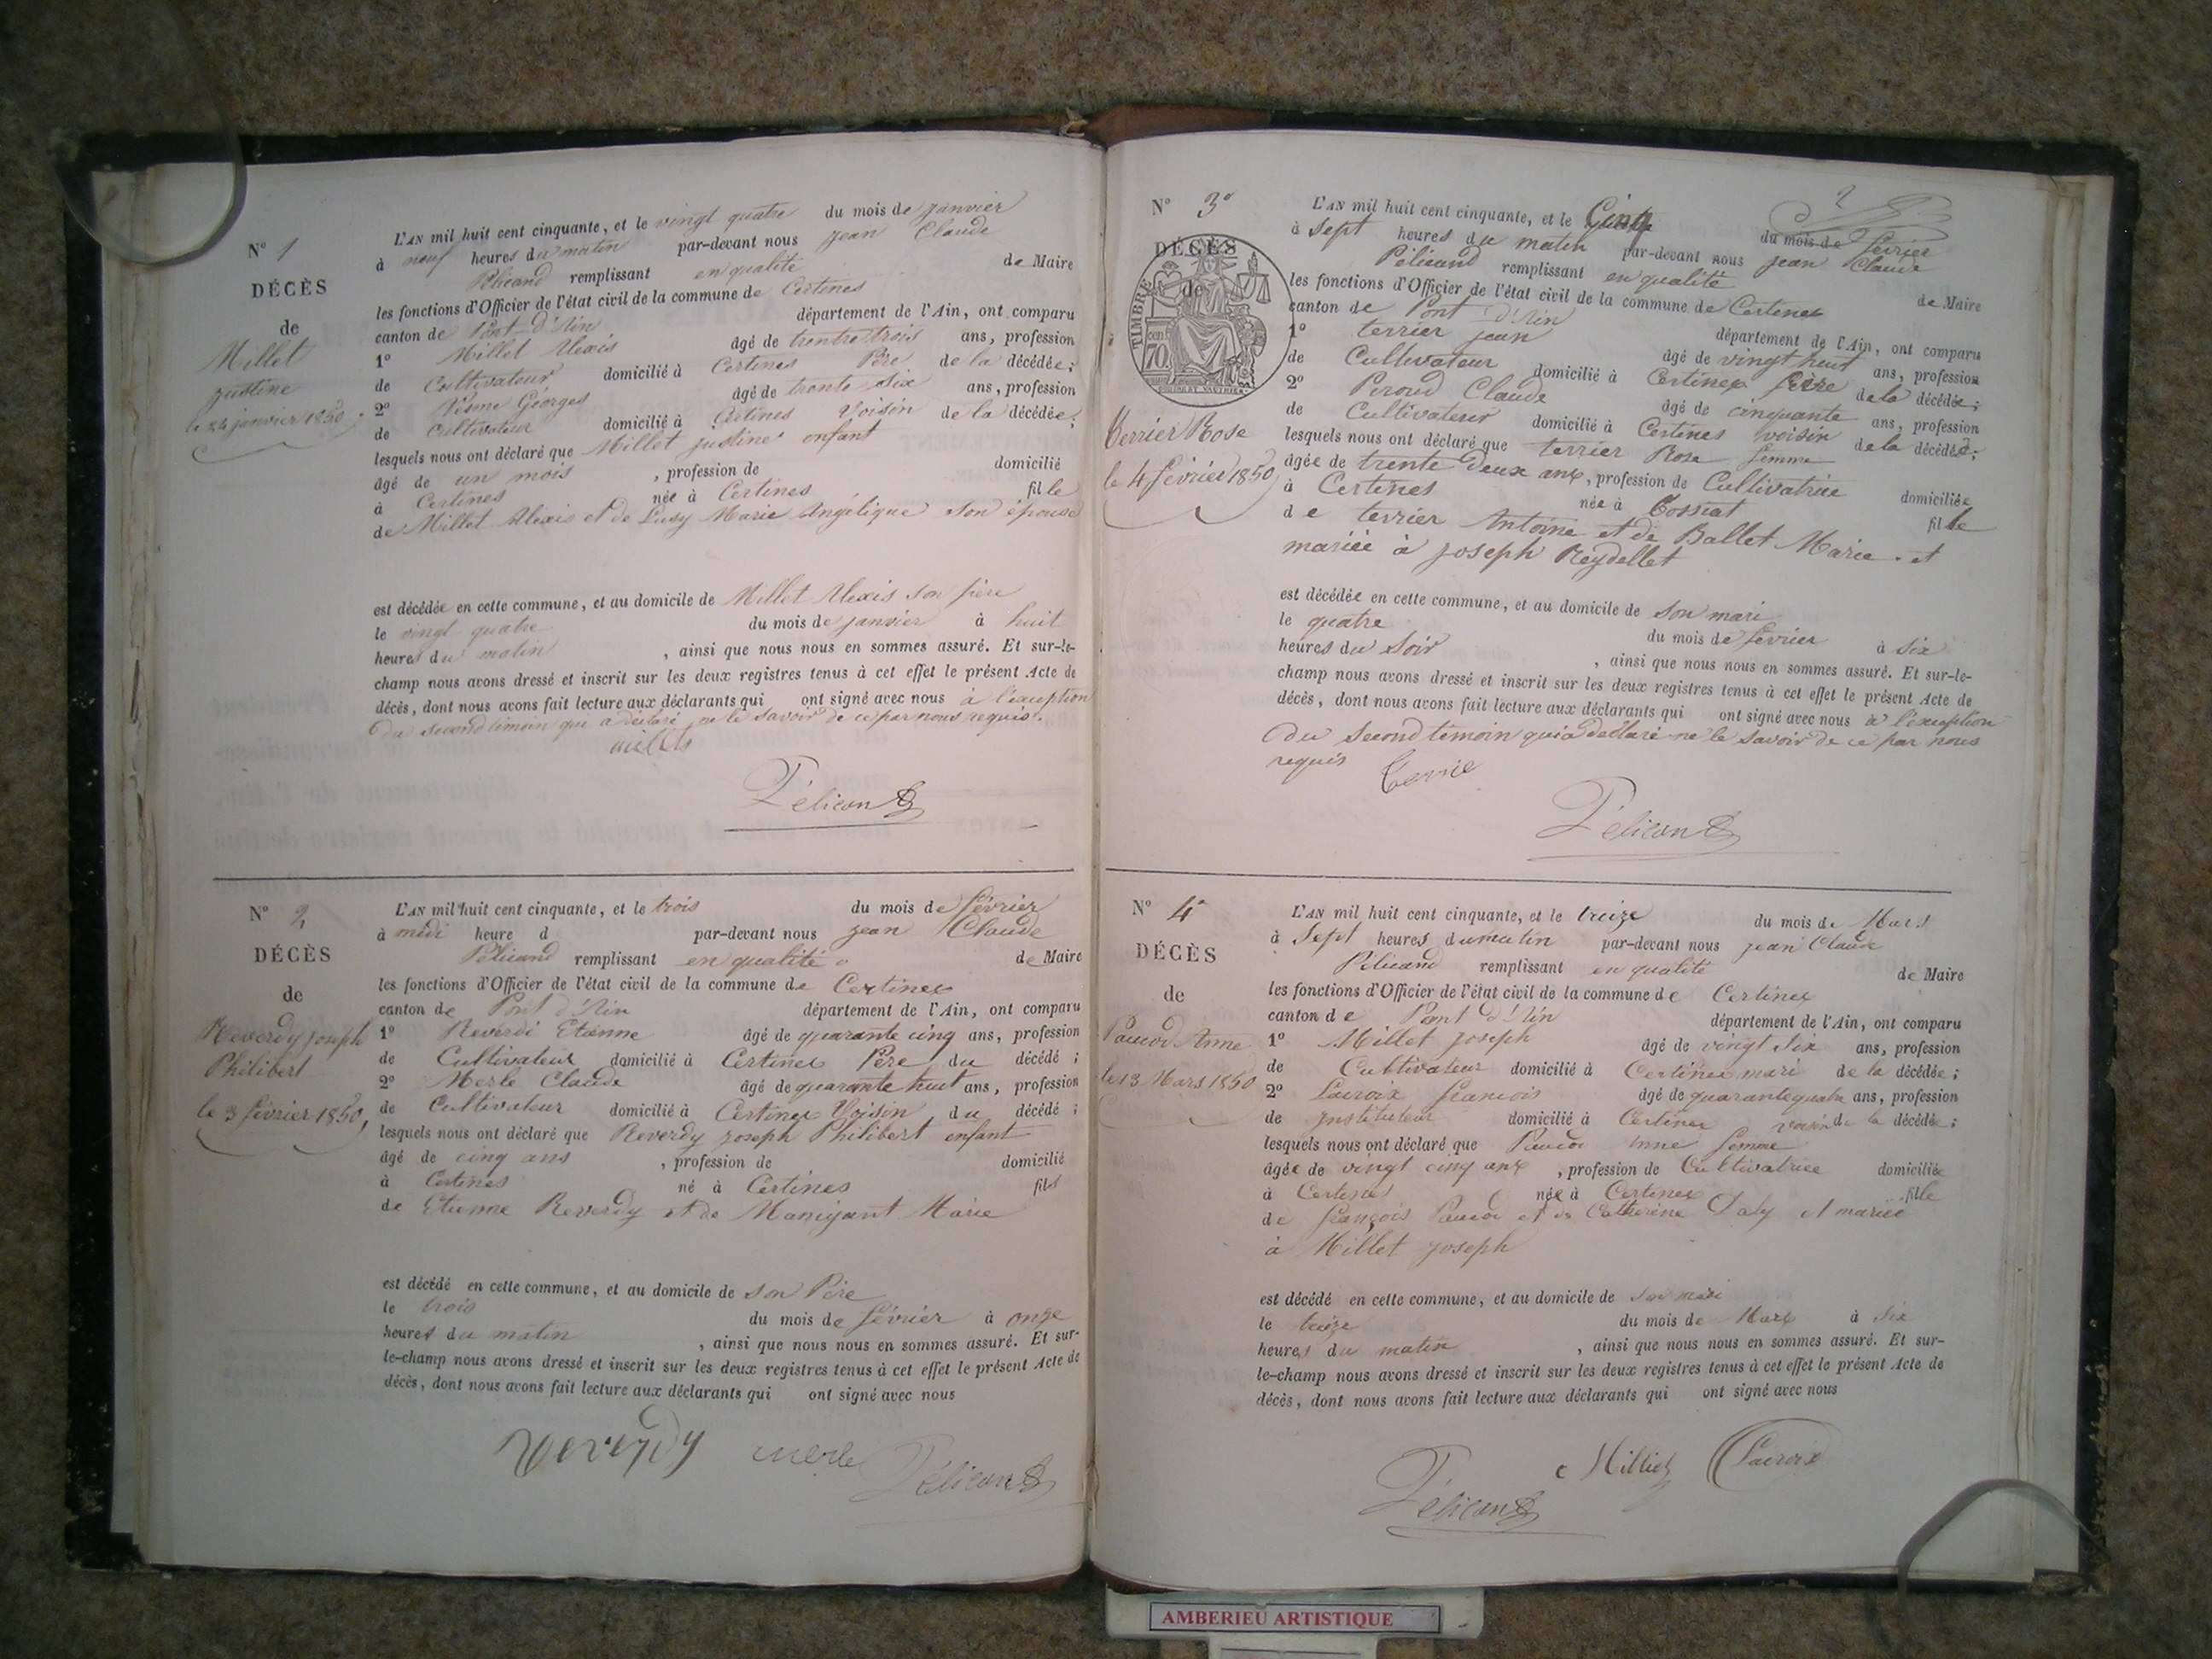 N° 1
DÉCÈS
de
Millet
justine
le 24 janvier 1850
L'AN mil huit cent cinquante, et le vingt quatre du mois de janvier
à neuf heures du matin par-devant nous jean Claude
Pélicand remplissant en qualité de Maire
les fonctions d'Officier de l'état civil de la commune de Certines
canton de Pont-d'Ain département de l'Ain, ont comparu
1° Millet Alexis âgé de trentre trois ans, profession
de Cultivateur domicilié à Certines Père de la décédée;
2° Georges âgé de trente six ans, profession
de Cultivateur domicilié à Certines Voisin de la décédée;
lesquels nous ont déclaré que Millet justine enfant
âgé de un mois, profession de domicilié
à Certines née à Certines fille
de Millet Alexis et de Lusy Marie Angélique son épouse
est décédée en cette commune, et au domicile de Millet Alexis son père
le vingt quatre du mois de janvier à huit
heures du matin, ainsi que nous nous en sommes assuré. Et sur-le-
champ nous avons dressé et inscrit sur les deux registres tenus à cet effet le présent Acte de
décès, dont nous avons fait lecture aux déclarants qui ont signé avec nous à l'exception
du second témoin qui a déclaré ne le savoir de ce par nous requis.
Pélicand
N° 2
DÉCÈS
de
Reverdy joseph
Philibert
le 3 février 1850,
L'AN mil huit cent cinquante, et le trois du mois de février
à midi heure d par-devant nous jean Claude
Pélicand remplissant en qualité de Maire
les fonctions d'Officier de l'état civil de la commune de Certines
canton de Pont d'Ain département de l'Ain, ont comparu
1° Reverdi Etienne âgé de quarante cinq ans, profession
de Cultivateur domicilié à Certines Père du décédé;
2° Merle Claude âgé de quarante huit ans, profession
de Cultivateur domicilié à Certines Voisin du décédé;
lesquels nous ont déclaré que Reverdy joseph Philibert enfant
âgé de cinq ans, profession de domicilié
à Certines né à Certines fils
de Etienne Reverdy et de Marie
est décédé en cette commune, et au domicile de son Père
le trois du mois de février à onze
heures du matin, ainsi que nous nous en sommes assuré. Et sur-
le-champ nous avons dressé et inscrit sur les deux registres tenus à cet effet le présent Acte de
décès, dont nous avons fait lecture aux déclarants qui ont signé avec nous
Reverdy merle Pélicand
2
N° 3
DÉCÈS
de
TIMBRE
70
terrier Rose
le 4 février 1850
L'AN mil huit cent cinquante, et le Cinq du mois de février
à sept heures du matin par-devant nous jean Claude
Pélicand remplissant en qualité de Maire
les fonctions d'Officier de l'état civil de la commune de Certines
canton de Pont d'Ain département de l'Ain, ont comparu
1° terrier jean âgé de vingt huit ans, profession
de Cultivateur domicilié à Certines frère de la décédée;
2° Peroud Claude âgé de cinquante ans, profession
de Cultivateur domicilié à Certines voisin de la décédée;
lesquels nous ont déclaré que terrier Rose femme
âgée de trente deux ans, profession de Cultivatrice domiciliée
à Certines née à Tossiat fille
de terrier Antoine et de Ballet Marie . et
mariée à joseph Reydellet
est décédée en cette commune, et au domicile de son mari
le quatre du mois de février à six
heures du soir, ainsi que nous nous en sommes assuré. Et sur-le-
champ nous avons dressé et inscrit sur les deux registres tenus à cet effet le présent Acte de
décès, dont nous avons fait lecture aux déclarants qui ont signé avec nous à l'exception
du second témoin qui a déclaré ne le savoir de ce par nous
requis
Pélicand
N° 4
DÉCÈS
de
Anne
le 13 Mars 1850
L'AN mil huit cent cinquante, et le treize du mois de Mars
à Sept heures du matin par-devant nous jean Claude
Pélicand remplissant en qualité de Maire
les fonctions d'Officier de l'état civil de la commune de Certines
canton de Pont d'Ain département de l'Ain, ont comparu
1° Millet joseph âgé de vingt six ans, profession
de Cultivateur domicilié à Certines mari de la décédée;
2° Lacroix francois âgé de quarante quatre ans, profession
de jnstituteur domicilié à Certines voisin de la décédée;
lesquels nous ont déclaré que Anne femme
âgée de vingt cinq ans, profession de Cultivatrice domiciliée
à Certines née à Certines fille
de françois et de Catherine Daly et mariée
à Millet joseph
est décédé en cette commune, et au domicile de son mari
le treize du mois de Mars à six
heures du matin, ainsi que nous nous en sommes assuré. Et sur-
le-champ nous avons dressé et inscrit sur les deux registres tenus à cet effet le présent Acte de
décès, dont nous avons fait lecture aux déclarants qui ont signé avec nous
Pélicand Lacroix
AMBERIEU ARTISTIQUE